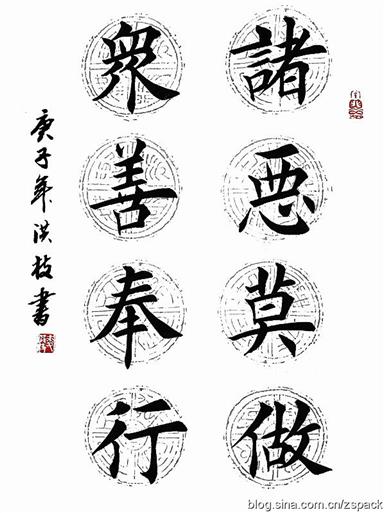 諸悪莫做
衆善奉行
庚子年洪枝書
blog.sina.com.cn/zspack